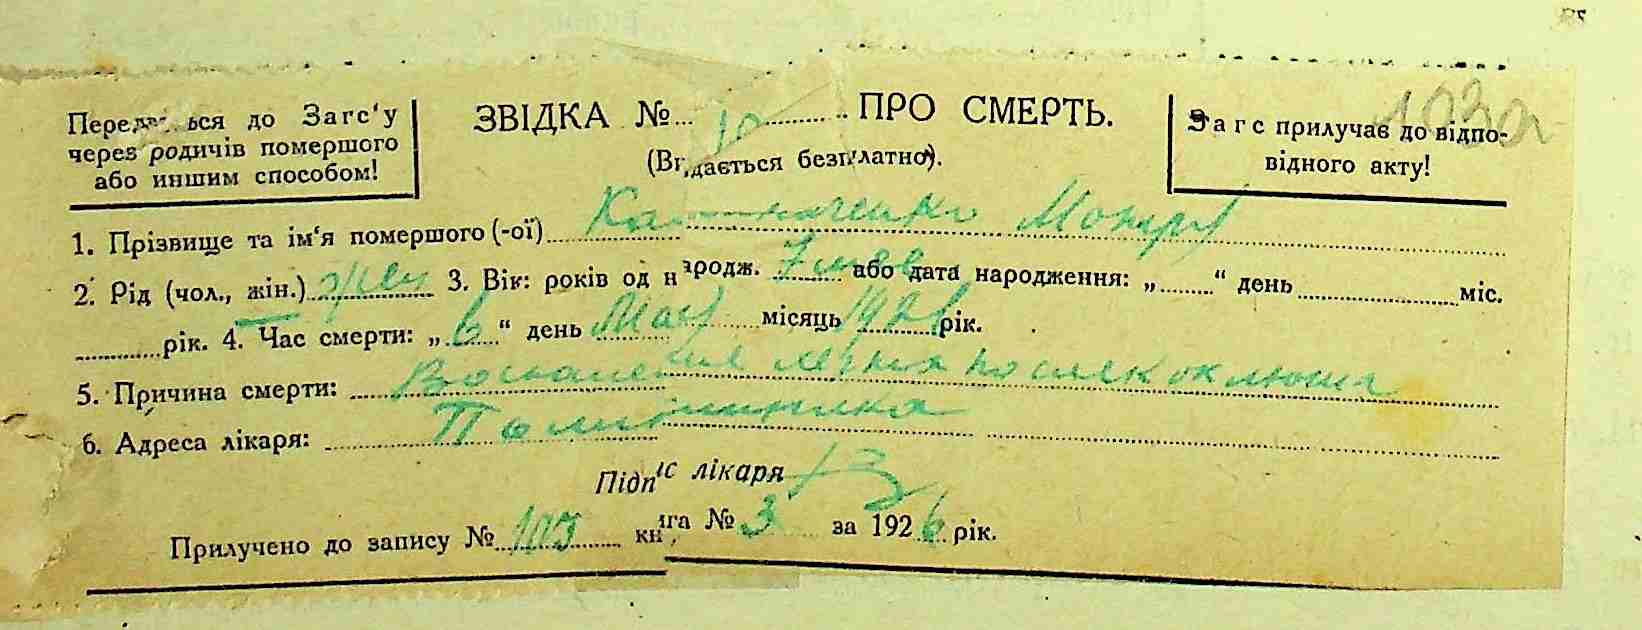 1030
Передається до Загс'у
через родичів помершого
або иншим способом!
ЗВІДКА № 10 ПРО СМЕРТЬ.
(Видається безплатно).
Загс прилучає до відпо-
відного акту!
1. Прізвище та ім'я помершого (-ої)
2. Рід (чол., жін.) жен 3. Вік: років од народж. 7 мес або дата народження: „ “ день міс.
рік. 4. Час смерти: „6“ день Мая місяць 1926 рік.
5. Причина смерти: Воспаление легких после коклюша
6. Адреса лікаря: Поликлиника
Підпис лікаря
Прилучено до запису № 103 книга № 3 за 1926 рік.